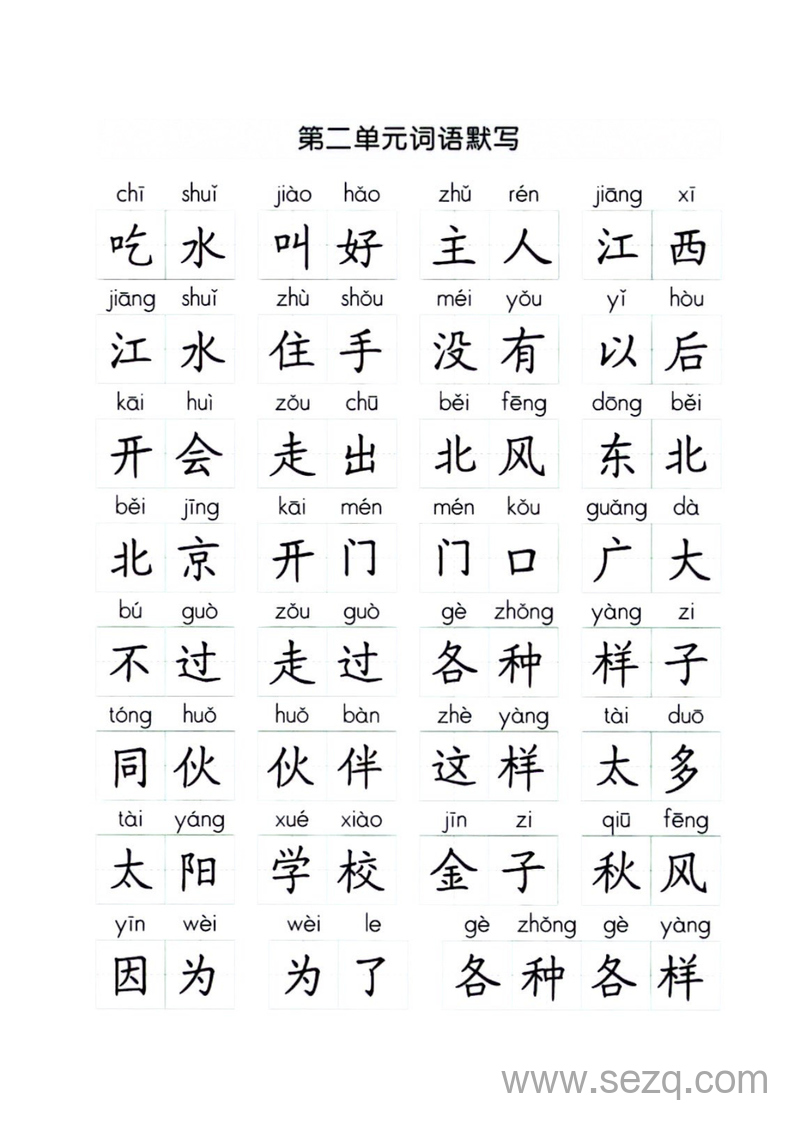 第二单元词语默写
chī shuǐ jiào hǎo zhǔ rén jiāng xī
吃水 叫好 主人 江西
jiāng shuǐ zhù shǒu méi yǒu yǐ hòu
江水 住手 没有 以后
kāi huì zǒu chū běi fēng dōng běi
开会 走出 北风 东北
běi jīng kāi mén mén kǒu guǎng dà
北京 开门 门口 广大
bú guò zǒu guò gè zhǒng yàng zi
不过 走过 各种 样子
tóng huǒ huǒ bàn zhè yàng tài duō
同伙 伙伴 这样 太多
tài yáng xué xiào jīn zi qiū fēng
太阳 学校 金子 秋风
yīn wèi wèi le gè zhǒng gè yàng
因为 为了 各种各样
www.sezq.com